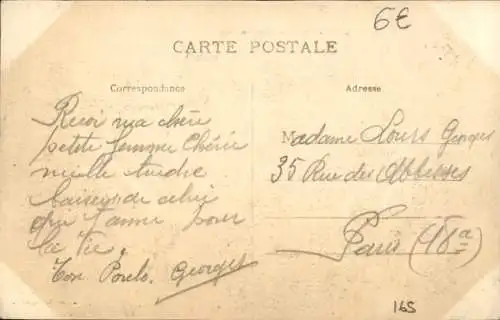 6€
CARTE POSTALE
Correspondance
Adresse
Recoi ma chère
petite femme Chérie
mille tendre
baisers de celui
qui t'aime pour
la vie,
Ton Georges
Madame Louis Georges
35 Rue des Abbesses
Paris (18e)
165